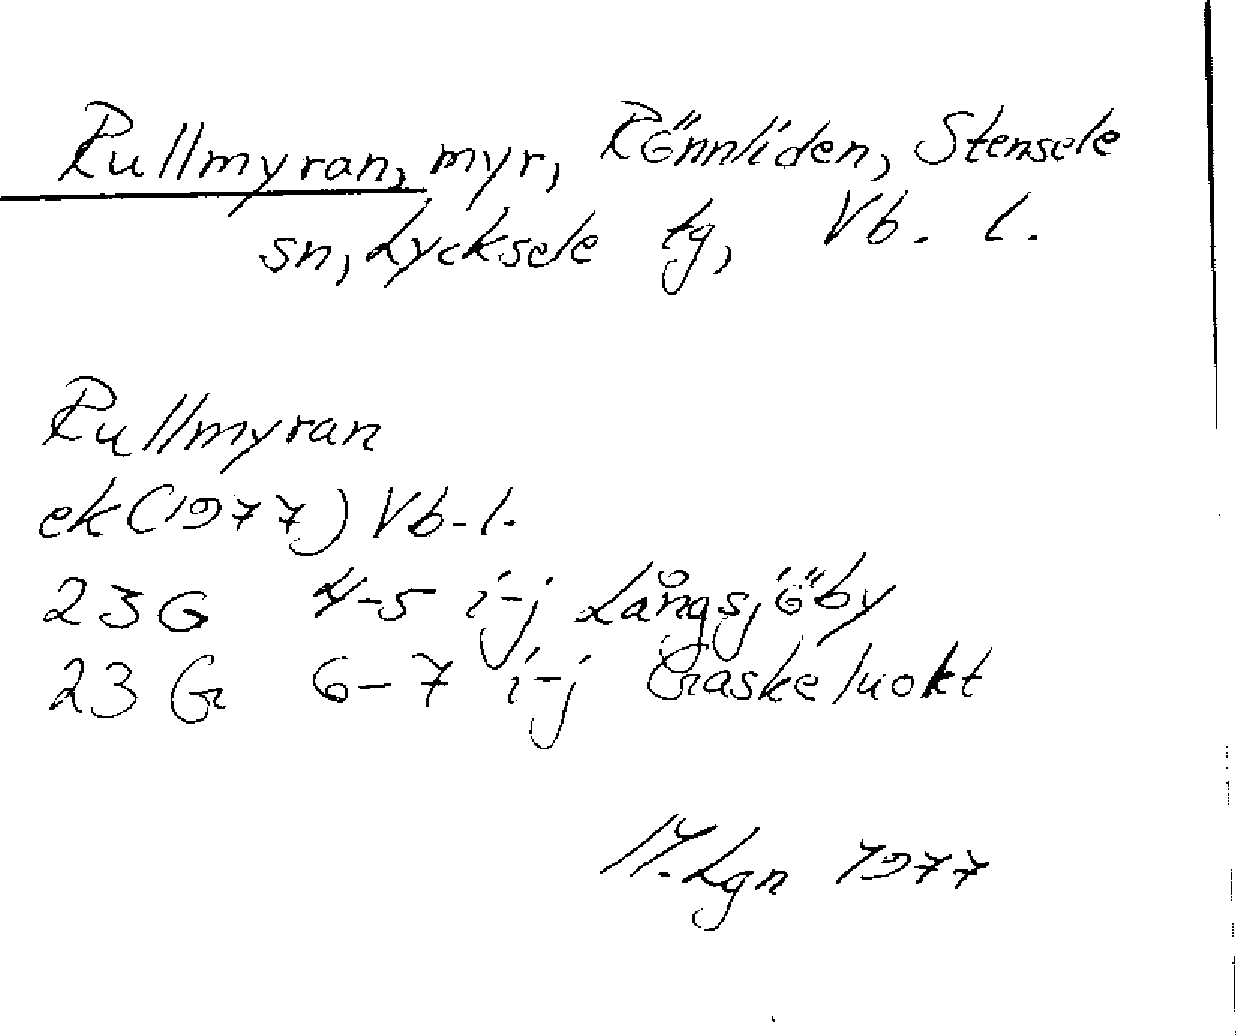 Rullmyran, myr, Rönnliden, Stensele
sn, Lycksele tg, Vb. l.
Rullmyran
ek (1977) Vb-l.
23 G 4-5 i-j Långsjöby
23 G 6-7 i-j Gaskeluokt
Lgn 1977